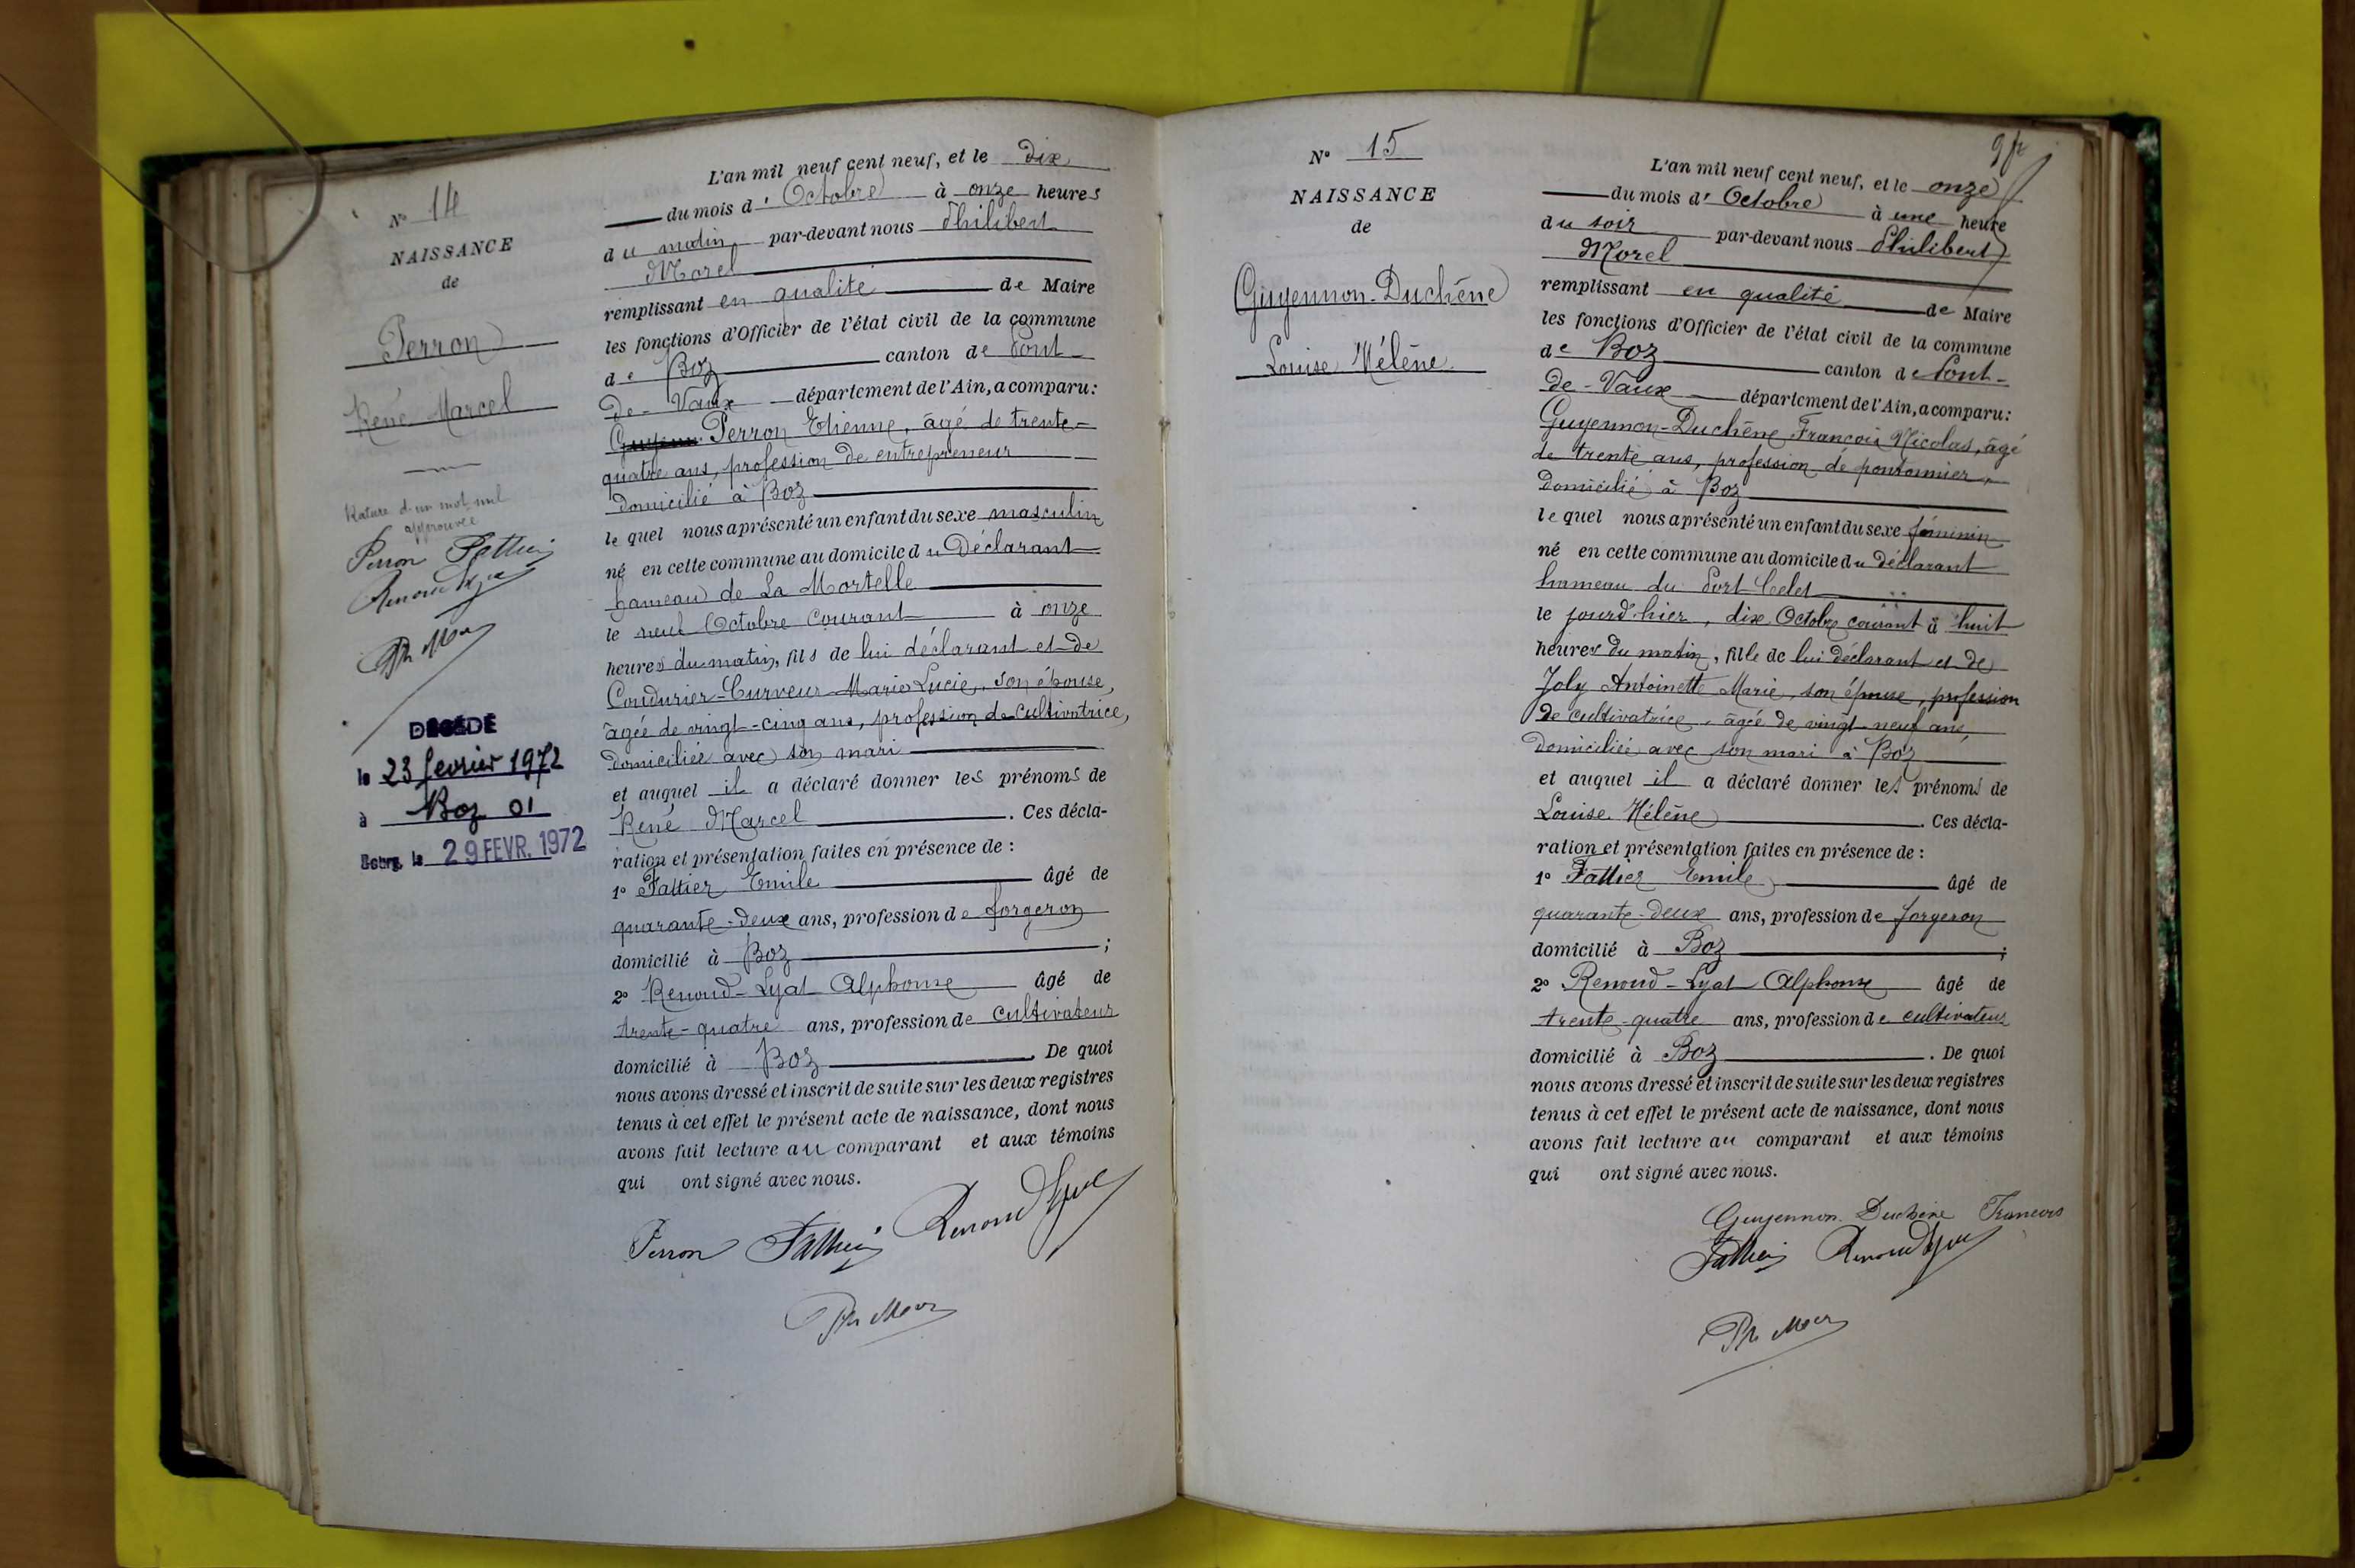 N° 14
NAISSANCE
de
Perron
René Marcel
Rature d'un mot nul
approuvée
Perron Fattier
Renoud Lyat
Ph Morel
DÉCÉDÉ
le 23 fevrier 1972
à Boz 01
Bourg, le 29 FEVR. 1972
L'an mil neuf cent neuf, et le dix
du mois d'Octobre à onze heures
du matin par-devant nous Philibert
Morel
remplissant en qualité de Maire
les fonctions d'Officier de l'état civil de la commune
de Boz canton de Pont-
De-Vaux département de l'Ain, a comparu :
Perron Etienne, âgé de trente-
quatre ans, profession de entrepreneur
domicilié à Boz
lequel nous a présenté un enfant du sexe masculin
né en cette commune au domicile du Déclarant
hameau de La Mortelle
le neuf Octobre Courant à onze
heures du matin, fils de lui déclarant et de
Coudurier-Curveur Marie Lucie, son épouse,
âgée de vingt-cinq ans, profession de cultivatrice,
domiciliée avec son mari
et auquel il a déclaré donner les prénoms de
René Marcel. Ces décla-
ration et présentation faites en présence de :
1° Fattier Emile âgé de
quarante-deux ans, profession de forgeron
domicilié à Boz ;
2° Renoud-Lyat Alphonse âgé de
trente-quatre ans, profession de cultivateur
domicilié à Boz. De quoi
nous avons dressé et inscrit de suite sur les deux registres
tenus à cet effet le présent acte de naissance, dont nous
avons fait lecture au comparant et aux témoins
qui ont signé avec nous.
Perron Fattier Renoud Lyat
Ph Morel
N° 15
NAISSANCE
de
Guyennon-Duchêne
Louise Hélène
L'an mil neuf cent neuf, et le onze
du mois d'Octobre à une heure
du soir par-devant nous Philibert
Morel
remplissant en qualité de Maire
les fonctions d'Officier de l'état civil de la commune
de Boz canton de Pont-
De-Vaux département de l'Ain, a comparu :
Guyennon-Duchêne François Nicolas, âgé
de trente ans, profession de pontonnier
Domicilié à Boz
lequel nous a présenté un enfant du sexe féminin
né en cette commune au domicile du déclarant
hameau du Port Celet
le jourd'hier, dix Octobre courant à huit
heures du matin, fille de lui déclarant et de
Joly Antoinette Marie, son épouse, profession
De cultivatrice, âgée de vingt-neuf ans,
domiciliée avec son mari à Boz
et auquel il a déclaré donner les prénoms de
Louise Hélène. Ces décla-
ration et présentation faites en présence de :
1° Fattier Emile âgé de
quarante-deux ans, profession de forgeron
domicilié à Boz ;
2° Renoud-Lyat Alphonse âgé de
trente-quatre ans, profession de cultivateur
domicilié à Boz. De quoi
nous avons dressé et inscrit de suite sur les deux registres
tenus à cet effet le présent acte de naissance, dont nous
avons fait lecture au comparant et aux témoins
qui ont signé avec nous.
Guyennon Duchêne Francois
Fattier Renoud Lyat
Ph Morel